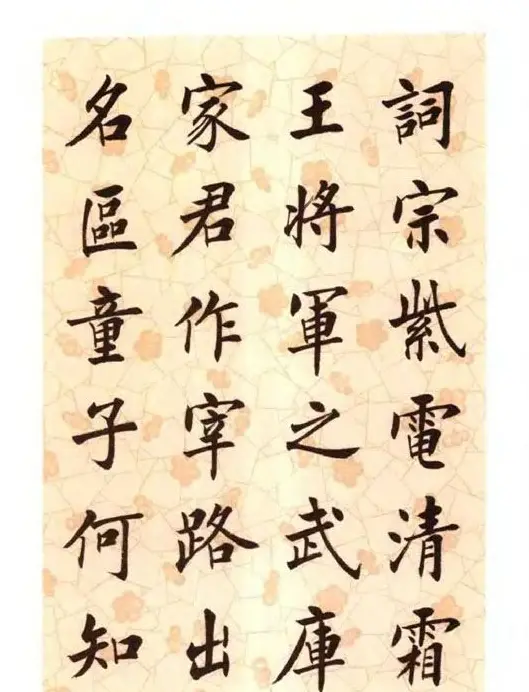 詞宗紫電清霜
王將軍之武庫
家君作宰路出
名區童子何知